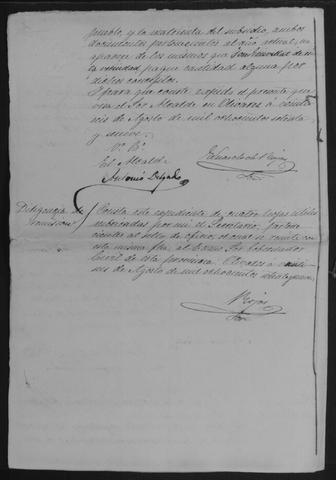 pueblo, y la matricula del subsidio, ambos
documentos pertenecientes al año actual, no
aparece de los mismos que
la vecindad pague cantidad alguna por
dichos conceptos.
Y para que conste expido el presente que
visa el Sor Alcalde en Olivares á veinte
seis de Agosto de mil ochocientos setenta
y nueve.
Vº Bº
El Alcalde
Antonio Delgado
Eduardo de Rojas
Diligencia de
remision
Consta este expediente de cuatro hojas utiles
rubricadas por mi el Secretario,
al sello de oficio, el cual se remite con
esta misma fha. al Excmo Sr. Gobernador
de esta provincia. Olivares á veinte
seis de Agosto de mil ochocientos setenta y nueve
Rojas